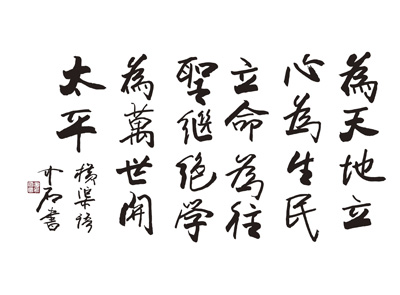 為天地立
心為生民
立命為往
聖继绝学
為萬世開
太平
横渠語
石書